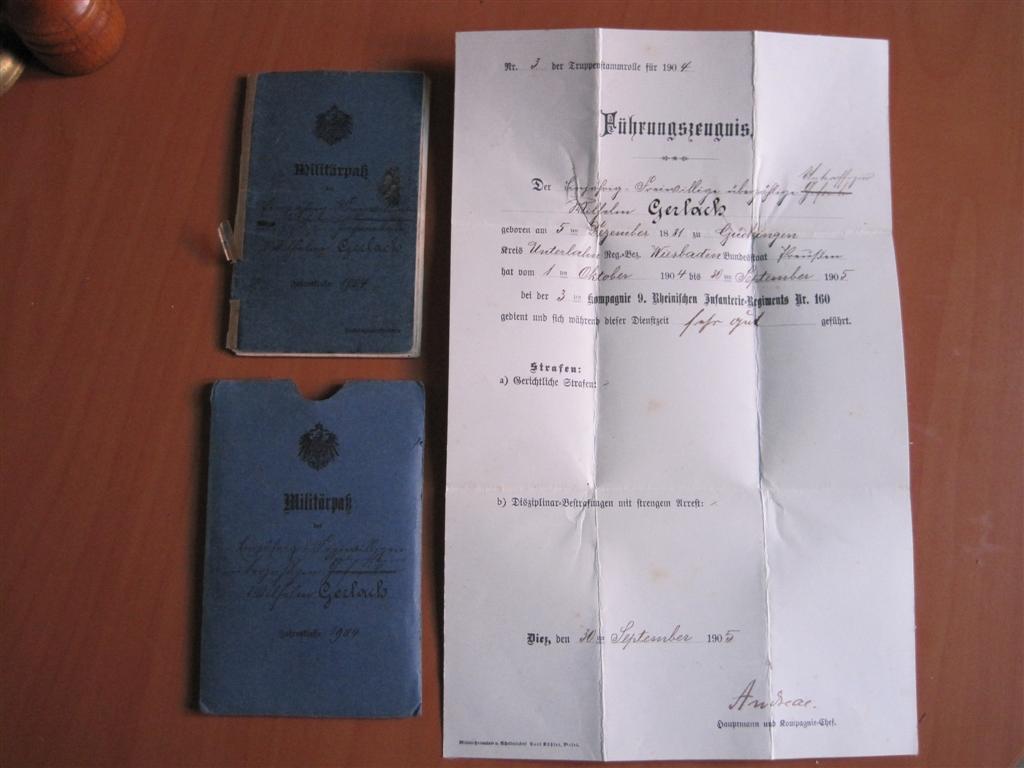 Militärpaß
des
Wilhelm Gerlach
Jahresklasse 1904
Militärpaß
des
Einjährig-Freiwilligen
Wilhelm Gerlach
Jahresklasse 1904
Nr. 3 der Truppenstammrolle für 1904
Führungszeugnis.
Der Einjährig-Freiwillige überzählige
Wilhelm Gerlach
geboren am 5ten Dezember 1881 zu Gückingen
Kreis Unterlahn Reg.-Bez. Wiesbaden Bundesstaat Preußen
hat vom 1ten Oktober 1904 bis 30ten September 1905
bei der 3ten Kompagnie 9. Rheinischen Infanterie-Regiments Nr. 160
gedient und sich während dieser Dienstzeit sehr gut geführt.
Strafen:
a) Gerichtliche Strafen: -
b) Disziplinar-Bestrafungen mit strengem Arrest: -
Diez, den 30ten September 1905
Andreae.
Hauptmann und Kompagnie-Chef.